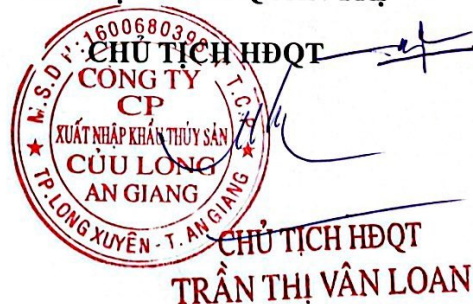 CHỦ TỊCH HĐQT
M.S.D.N:1600680398
T.C.P
CÔNG TY
CP
XUẤT NHẬP KHẨU THỦY SẢN
CỬU LONG
AN GIANG
TP.LONG XUYÊN - T. AN GIANG
CHỦ TỊCH HĐQT
TRẦN THỊ VÂN LOAN